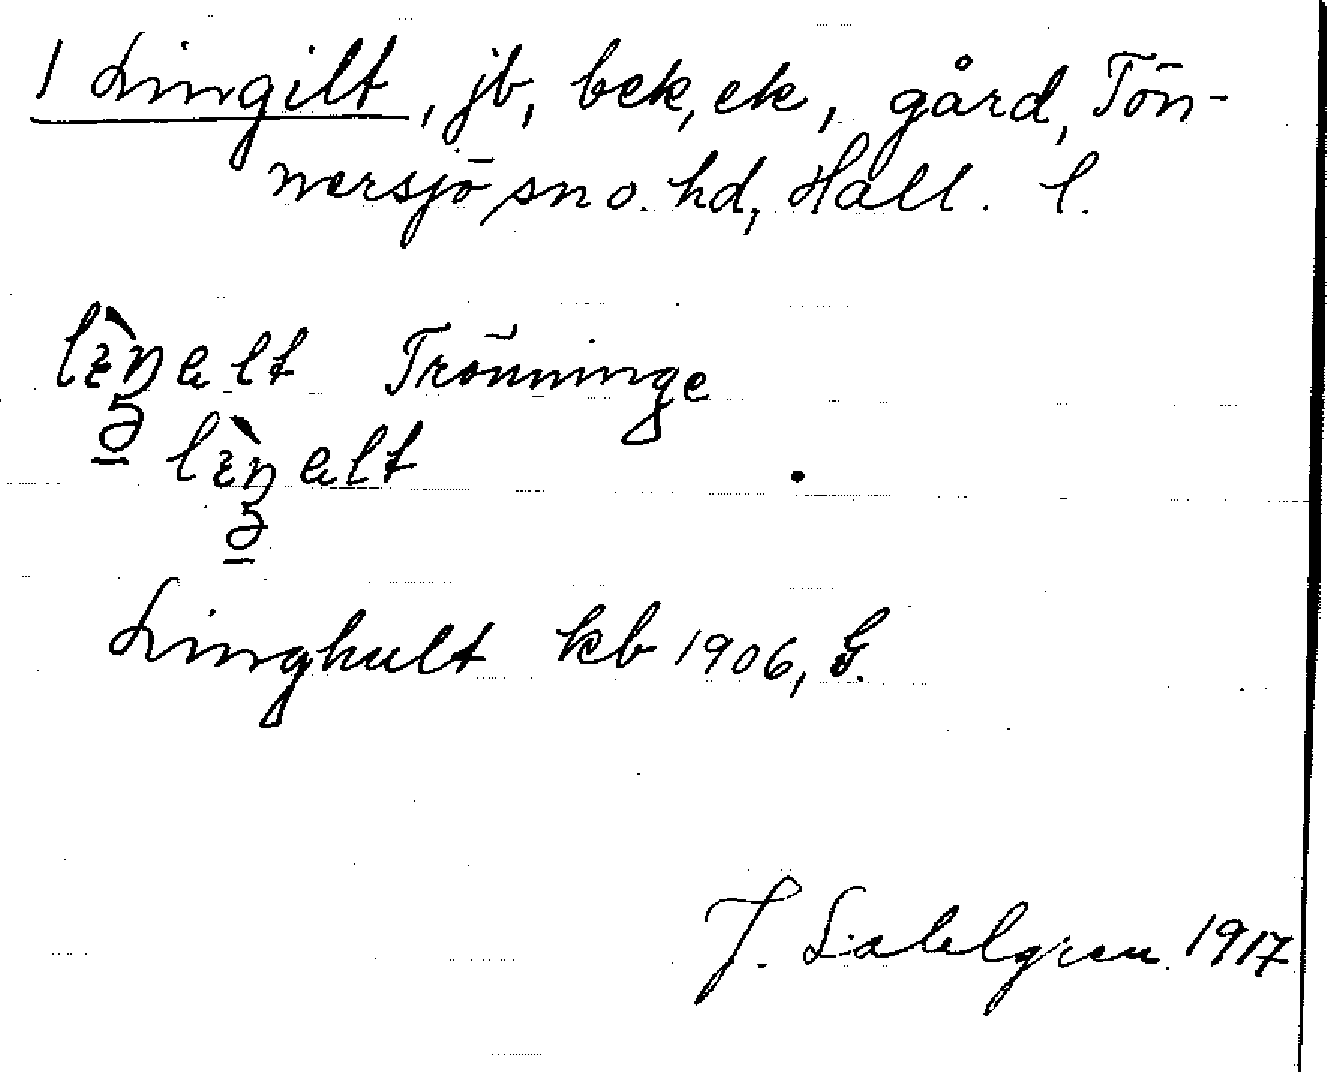 1 Lingilt, jb, bek, ek, gård, Tön-
nersjö sn o. hd, Hall. l.
Trönninge
Linghult kb 1906, G.
J. Sahlgren 1917